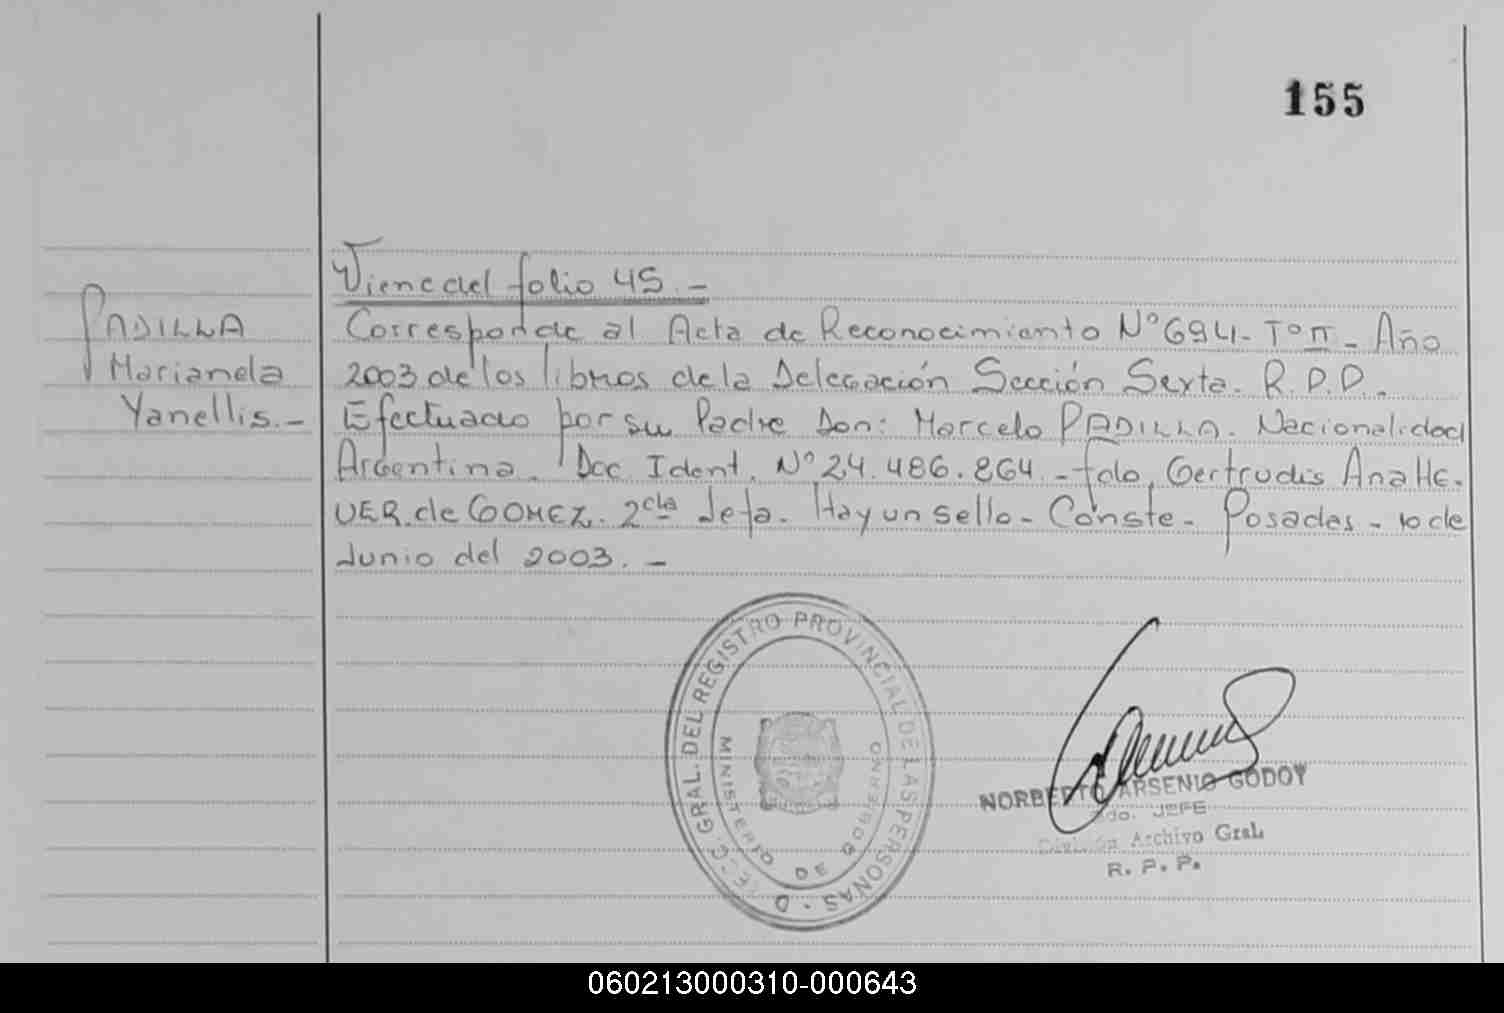 155
Viene del folio 45.-
PADILLA
Marianela
Yanellis.-
Corresponde al Acta de Reconocimiento Nº 694- Tº II - Año
2003 de los libros de la Delegación Sección Sexta. R.P.P..
Efectuado por su Padre Don: Marcelo PADILLA. Nacionalidad
Argentina. Doc Ident. Nº 24.486.864.- fdo. Gertrudis Ana HE.
VER. de GOMEZ. 2da Jefa. Hay un sello - Conste - Posadas - 10 de
Junio del 2003. -
DIRECC. GRAL. DEL REGISTRO PROVINCIAL DE LAS PERSONAS -
MINISTERIO DE GOBIERNO
NORBERTO ARSENIO GODOY
2do. JEFE
División Archivo Gral.
R. P. P.
060213000310-000643